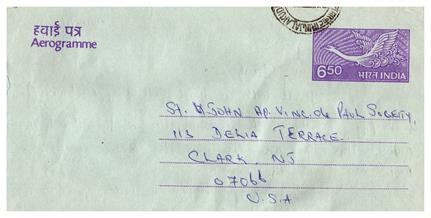 हवाई पत्र
Aerogramme
6.50
भारत INDIA
St. JOHN AP. VINC. de PAUL SOCIETY,
113 DELIA TERRACE.
CLARK, NJ
07066
U.S.A